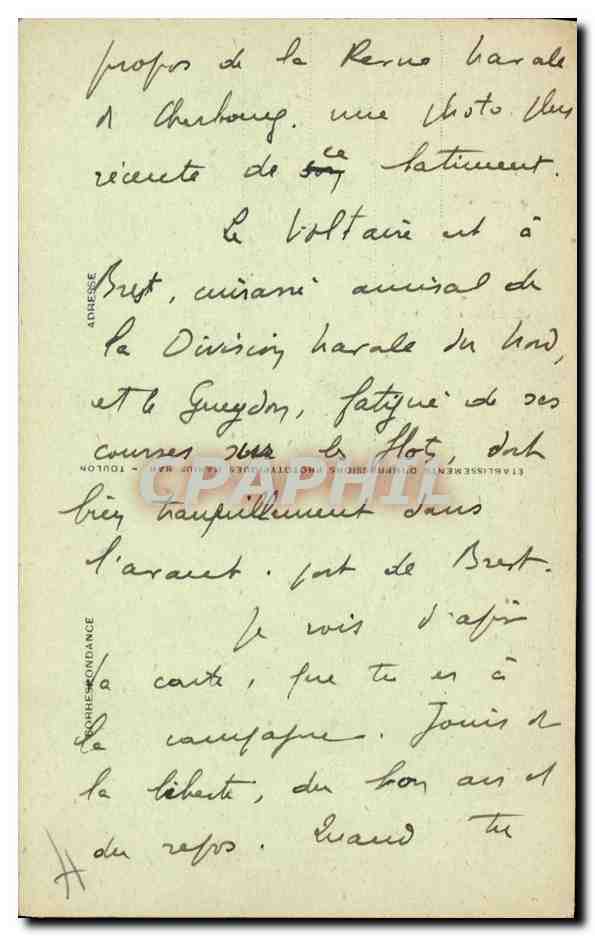 propos de la Revue navale
de Cherbourg. une photo plus
récente de ce batiment.
Le Voltaire est à
Brest, cuirassé amiral de
la Division navale du Nord,
et le Gueydon, fatigué de ses
courses sur les flots, dort
bien tranquillement dans
l'avant-port de Brest.
Je vois d'après
la carte, que tu es à
la campagne. Jouis de
la liberté, du bon air et
du repos. Quand tu
ADRESSE
CORRESPONDANCE
TOULON
CPAPHIL